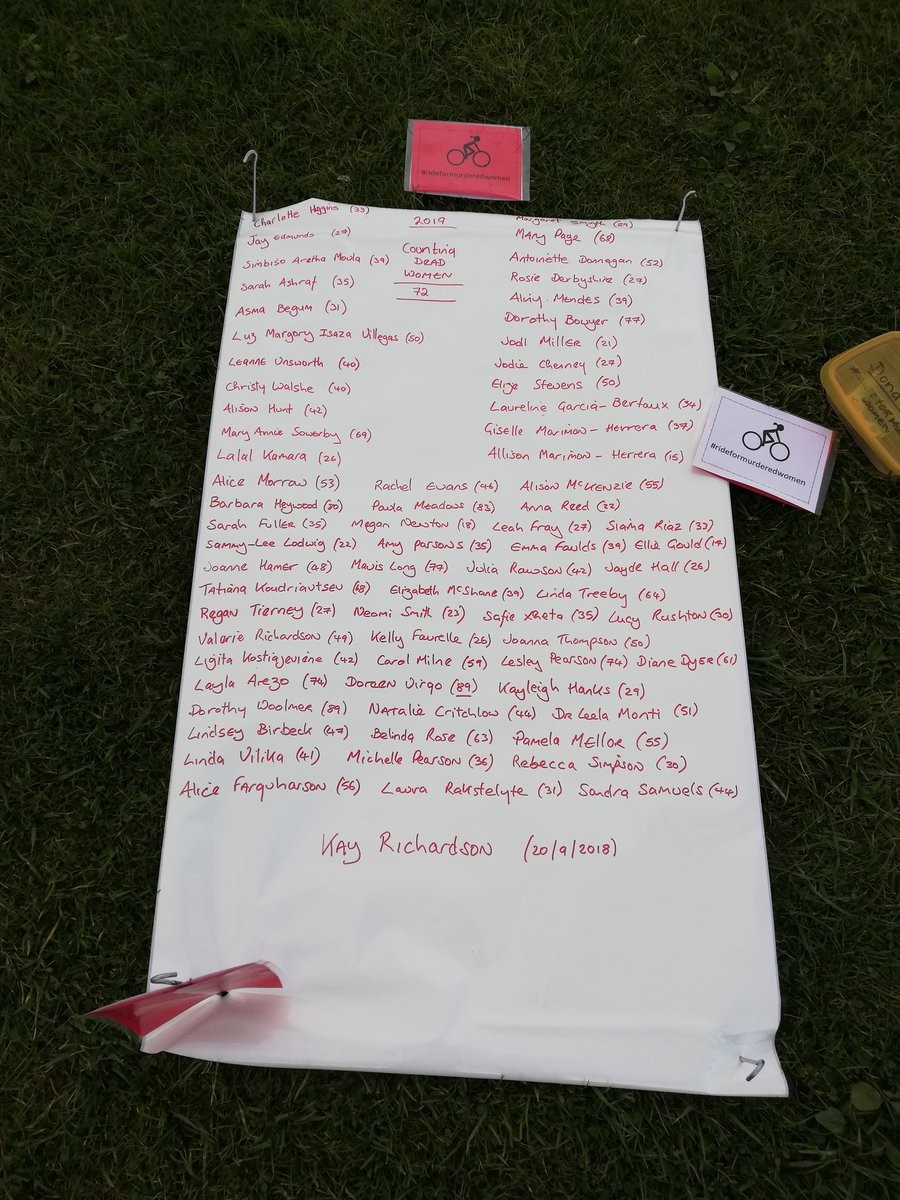 #rideformurderedwomen
Charlotte Higgins (33)
Jay Edmunds (27)
Simbiso Aretha Moula (39)
Sarah Ashraf (35)
Asma Begum (31)
Luz Margory Isaza Villegas (50)
Leanne Unsworth (40)
Christy Walshe (40)
Alison Hunt (42)
Mary Annie Sowerby (69)
Lalal Kamara (26)
2019
Counting
DEAD
WOMEN
72
Margaret Smyth
Mary Page (68)
Antoinette Donnegan (52)
Rosie Derbyshire (27)
Aliny Mendes (39)
Dorothy Bowyer (77)
Jodi Miller (21)
Jodie Chesney (27)
Elize Stevens (50)
Laureline Garcia-Bertaux (34)
Giselle Marimon-Herrera (37)
Allison Marimon-Herrera (15)
#rideformurderedwomen
Alice Morrow (53) Rachel Evans (46) Alison McKenzie (55)
Barbara Heywood (80) Paula Meadows (83) Anna Reed (22)
Sarah Fuller (35) Megan Newton (18) Leah Fray (27) Siama Riaz (33)
Sammy-Lee Lodwig (22) Amy Parsons (35) Emma Faulds (39) Ellie Gould (17)
Joanne Hamer (48) Mavis Long (77) Julia Rawson (42) Jayde Hall (26)
Tatiana Koudriavtsev (68) Elizabeth McShane (39) Linda Treeby (64)
Regan Tierney (27) Neomi Smith (23) Safie Xheta (35) Lucy Rushton (30)
Valerie Richardson (49) Kelly Faurelle (26) Joanna Thompson (50)
Ligita Kostiajeviene (42) Carol Milne (59) Lesley Pearson (74) Diane Dyer (61)
Layla Arezo (74) Doreen Virgo (89) Kayleigh Hanks (29)
Dorothy Woolmer (89) Natalie Critchlow (44) Dr Leela Monti (51)
Lindsey Birbeck (47) Belinda Rose (63) Pamela Mellor (55)
Linda Vilika (41) Michelle Pearson (36) Rebecca Simpson (30)
Alice Farquharson (56) Laura Rakstelyte (31) Sandra Samuels (44)
Kay Richardson (20/9/2018)